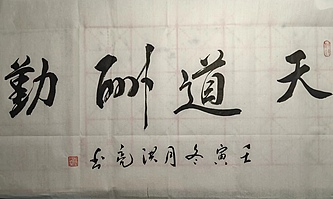 天道酬勤
壬寅冬月洪亮书